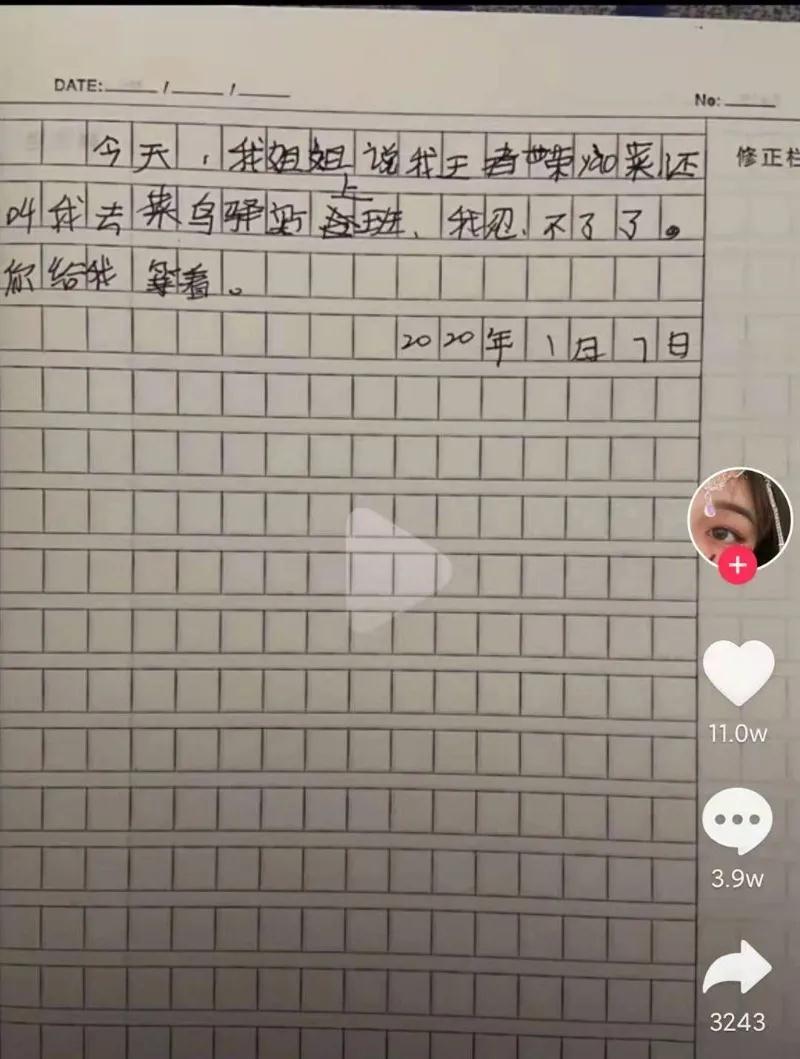 DATE:____/____/____
No:____
今天，我姐姐说我王者荣耀菜还
修正栏
叫我去菜鸟驿站上班，我忍不了了。
你给我等着。
2020年1月7日
11.0w
3.9w
3243